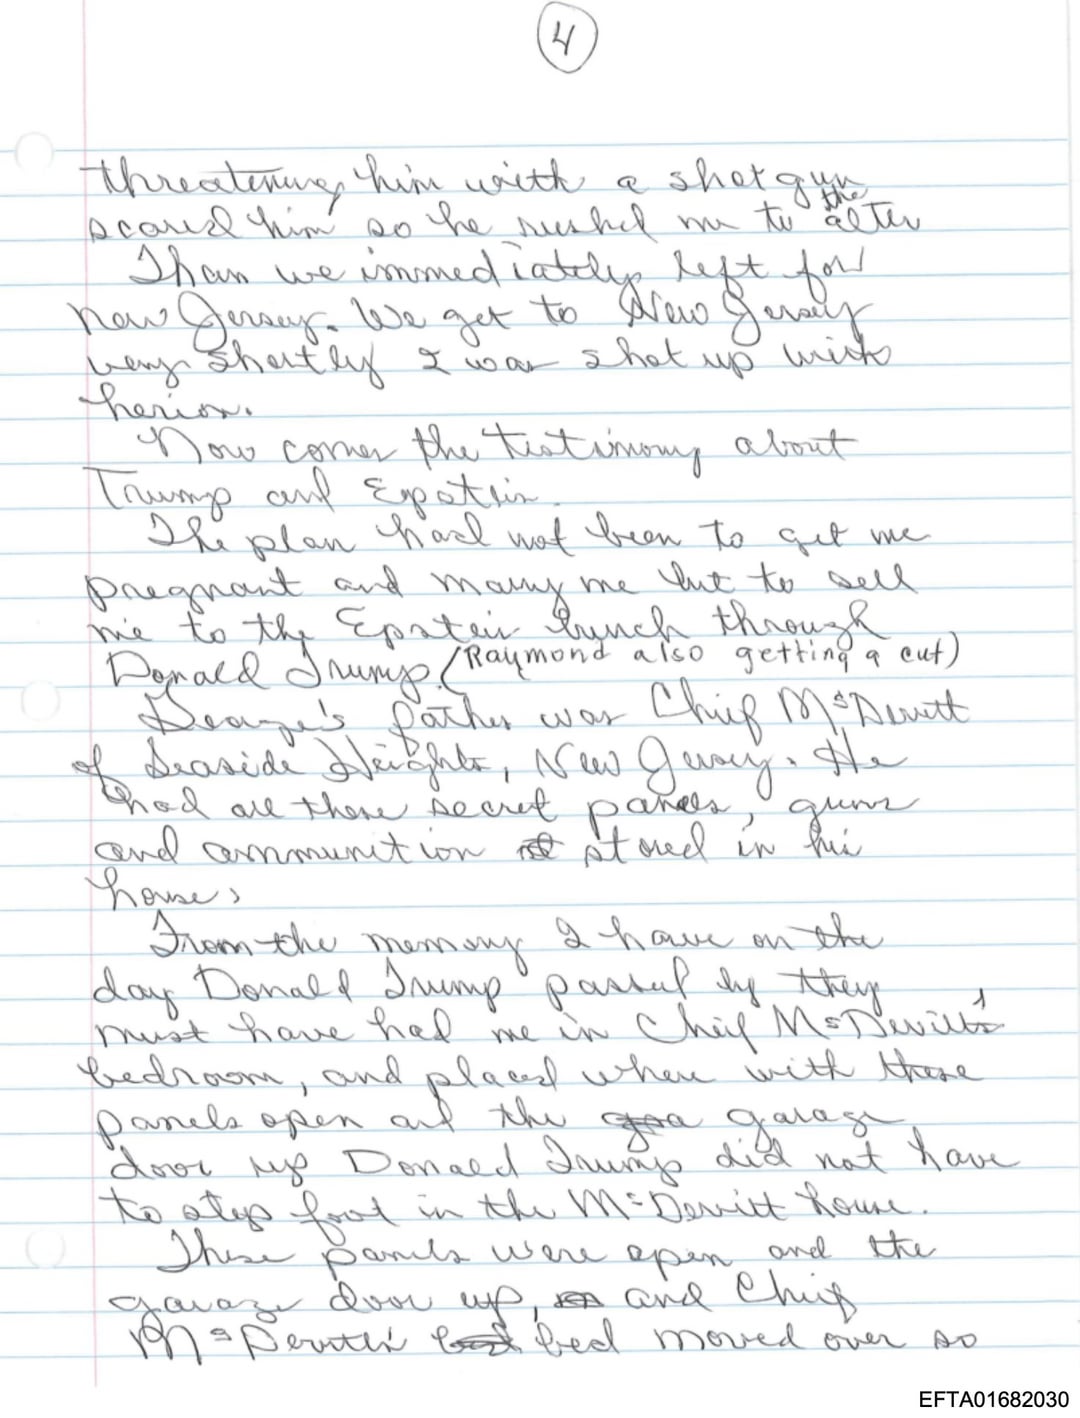 4
threatening him with a shotgun
scared him so he rushed me to the alter
Than we immediately left for
New Jersey. We get to New Jersey
very shortly I was shot up with
herion.
Now comes the testimony about
Trump and Epstein.
The plan had not been to get me
pregnant and marry me but to sell
me to the Epstein bunch through
Donald Trump. (Raymond also getting a cut)
father was Chief McDevitt
of Seaside Heights, New Jersey. He
had all these secret panels, guns
and ammunition stored in his
house,
From the memory I have on the
day Donald Trump passed by they
must have had me in Cheif McDevitt's
bedroom, and placed where with these
panels open and the garage
door up Donald Trump did not have
to step foot in the McDevitt house.
These panels were open and the
garage door up, and Chief
McDevitt's bed moved over so
EFTA01682030